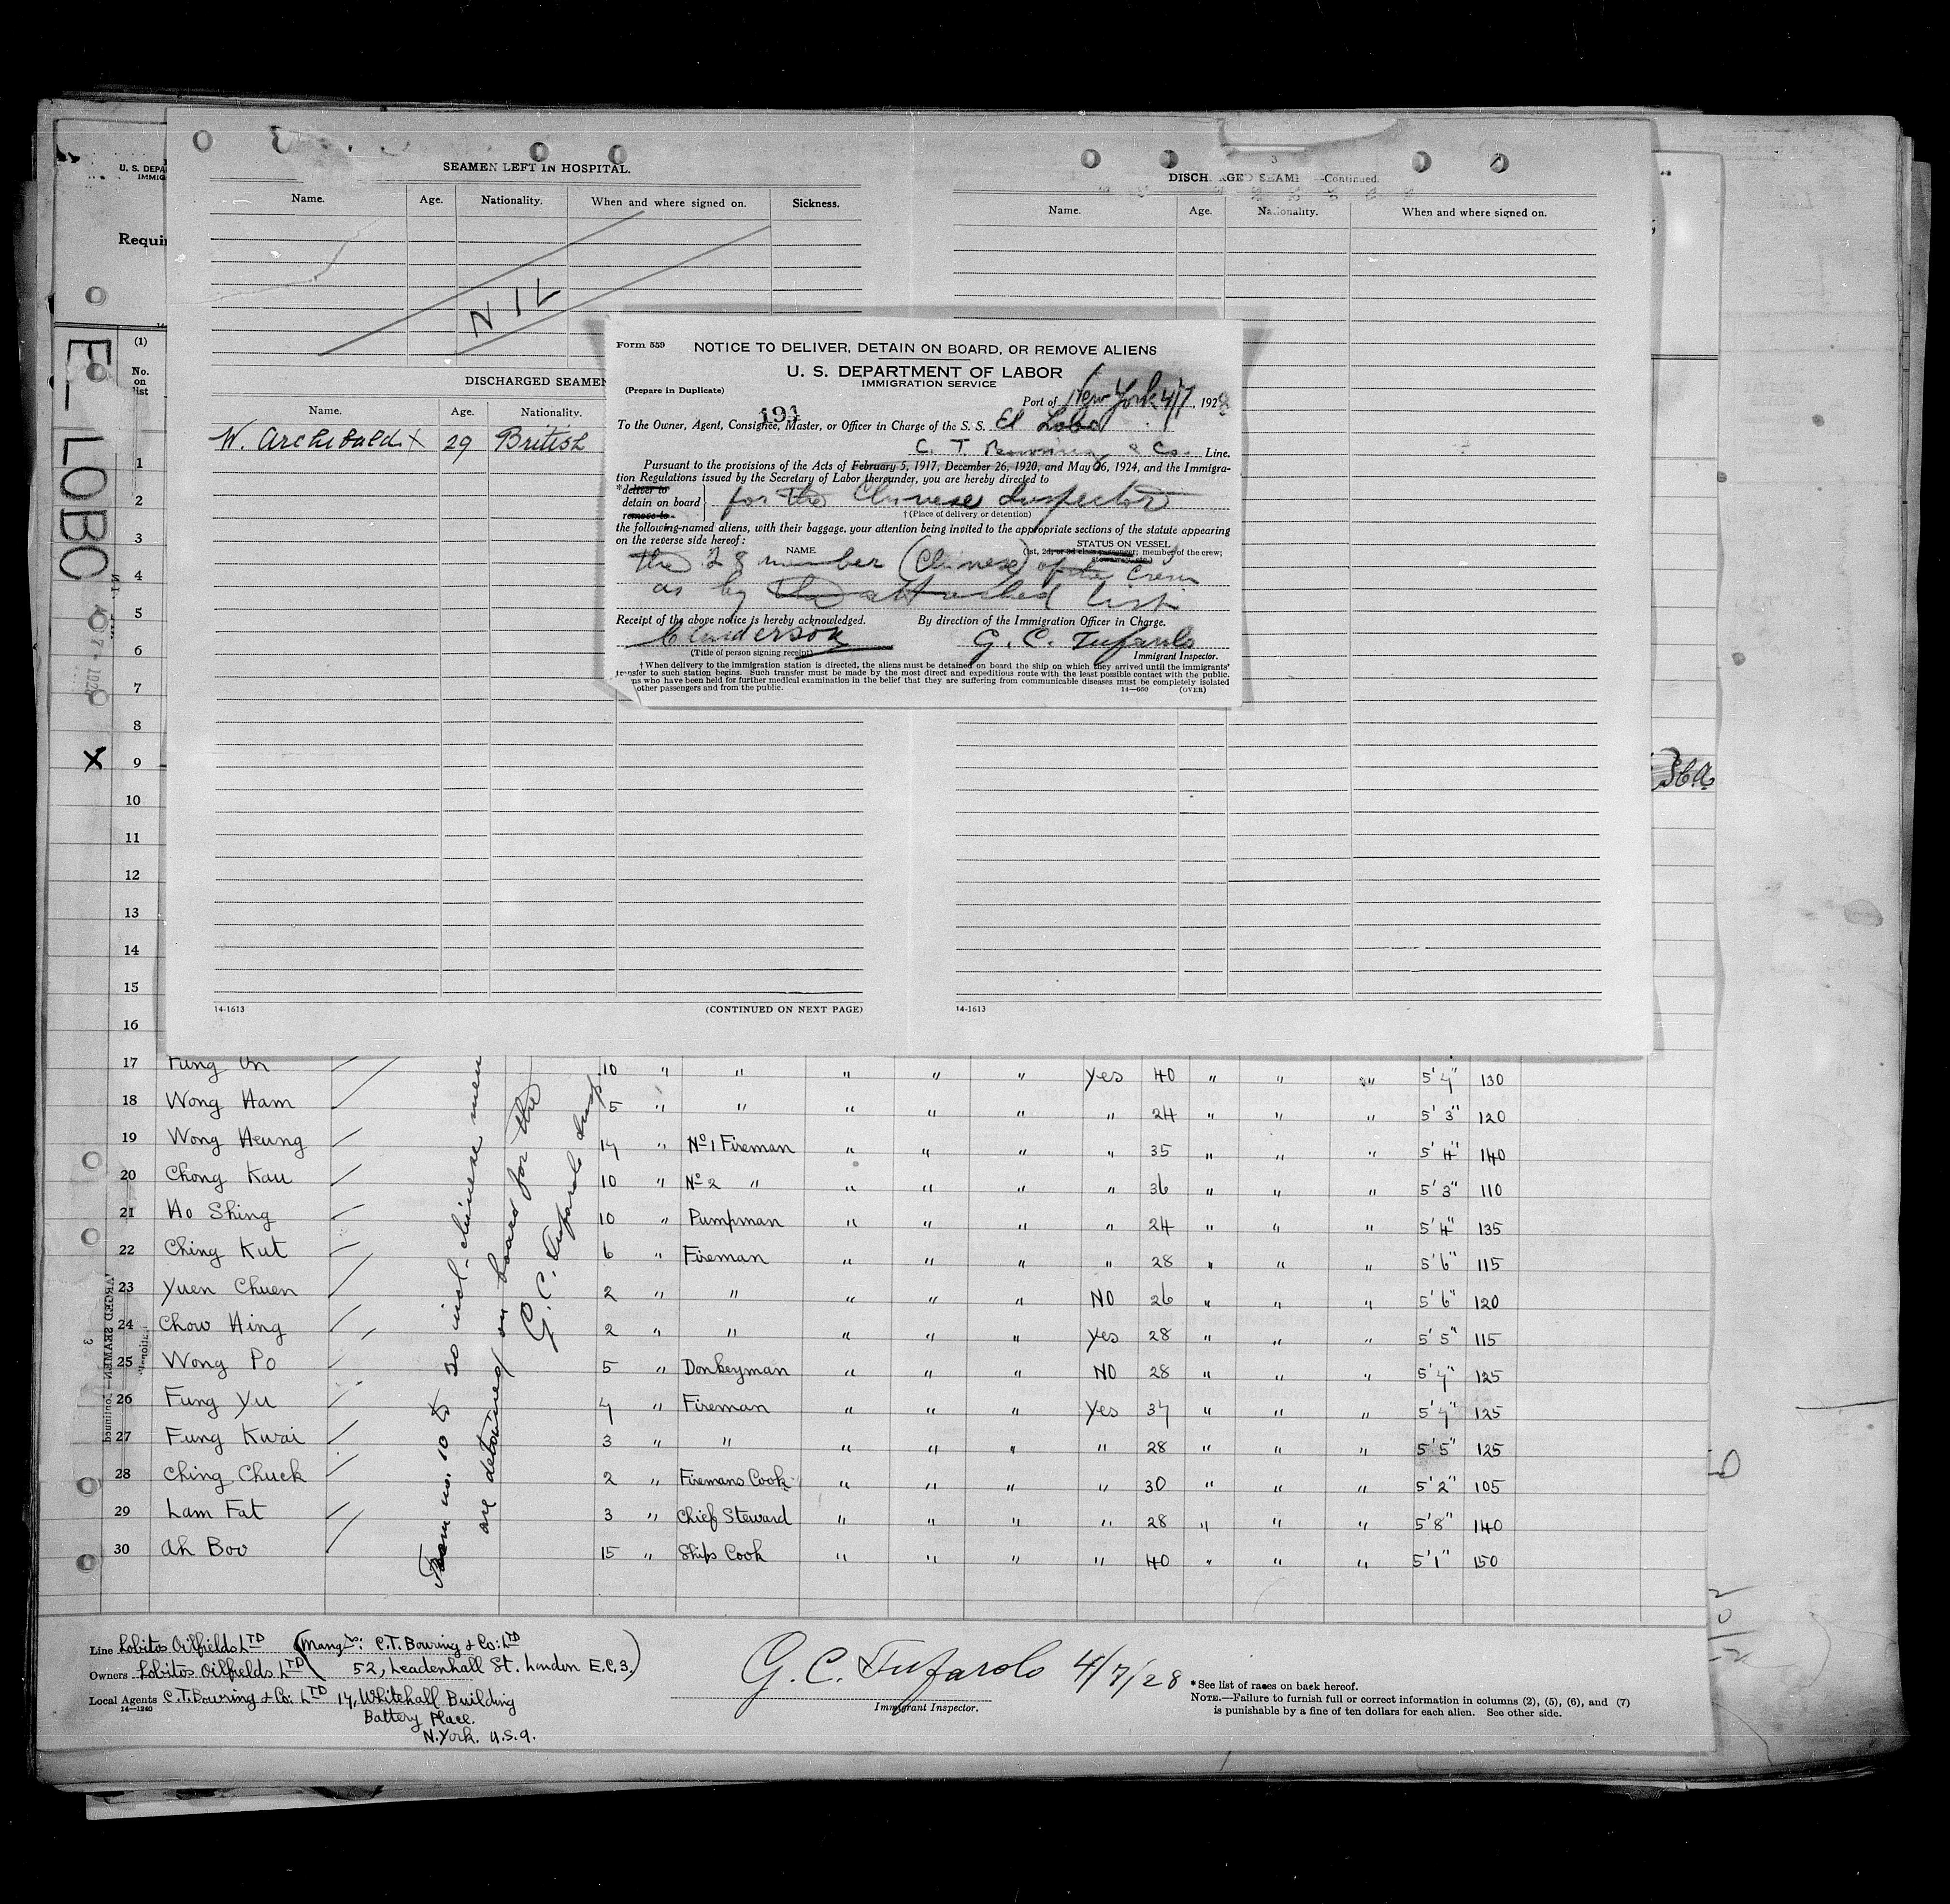 SEAMEN LEFT IN HOSPITAL.
Name. Age. Nationality. When and where signed on. Sickness.
NIL
DISCHARGED SEAMEN
Name. Age. Nationality.
W. Archibald X 29 British
14-1613 (CONTINUED ON NEXT PAGE)
3
DISCHARGED SEAM —Continued.
Name. Age. Nationality. When and where signed on.
14-1613
Form 559 NOTICE TO DELIVER, DETAIN ON BOARD, OR REMOVE ALIENS
U. S. DEPARTMENT OF LABOR
IMMIGRATION SERVICE
(Prepare in Duplicate)
Port of New York 4/7, 1928
191
To the Owner, Agent, Consignee, Master, or Officer in Charge of the S. S. El Lobo
C. T. Bowring & Co. Line.
Pursuant to the provisions of the Acts of February 5, 1917, December 26, 1920, and May 26, 1924, and the Immigra-
tion Regulations issued by the Secretary of Labor thereunder, you are hereby directed to
*deliver to
detain on board
remove to
for the Chinese Inspector
†(Place of delivery or detention)
the following-named aliens, with their baggage, your attention being invited to the appropriate sections of the statute appearing
on the reverse side hereof:
NAME STATUS ON VESSEL
(1st, 2d, or 3d class passenger; member of the crew;
the 28 member (Chinese) of the crew
as by the attached list
Receipt of the above notice is hereby acknowledged. By direction of the Immigration Officer in Charge.
G. C. Tufarolo
(Title of person signing receipt) Immigrant Inspector.
†When delivery to the immigration station is directed, the aliens must be detained on board the ship on which they arrived until the immigrants'
transfer to such station begins. Such transfer must be made by the most direct and expeditious route with the least possible contact with the public.
ns who have been held for further medical examination in the belief that they are suffering from communicable diseases must be completely isolated
other passengers and from the public. 14—660 (OVER)
U. S. DEPA
IMMIG
Requir
EL LOBO
(1)
No.
on
list
1
2
3
4
5
6
7
8
X 9
10
11
12
13
14
15
16
17 Fung On 10 " " " " " Yes 40 " " " 5'4" 130
18 Wong Ham 5 " " " " " " 24 " " " 5'3" 120
19 Wong Heung 14 " No 1 Fireman " " " " 35 " " " 5'4" 140
20 Chong Kau 10 " No 2 " " " " " 36 " " " 5'3" 110
21 Ho Shing 10 " Pumpman " " " " 24 " " " 5'4" 135
22 Ching Kut 6 " Fireman " " " " 28 " " " 5'6" 115
23 Yuen Chuen 2 " " " " " NO 26 " " " 5'6" 120
24 Chow Hing 2 " " " " " Yes 28 " " " 5'5" 115
25 Wong Po 5 " Donkeyman " " " NO 28 " " " 5'4" 125
26 Fung Yu 4 " Fireman " " " Yes 34 " " " 5'4" 125
27 Fung Kwai 3 " " " " " " 28 " " " 5'5" 125
28 Ching Chuck 2 " Firemans Cook " " " " 30 " " " 5'2" 105
29 Lam Fat 3 " Chief Steward " " " " 28 " " " 5'8" 140
30 Ah Boo 15 " Ships Cook " " " " 40 " " " 5'1" 150
From no. 10 to 30 incl. chinese men
are detained on board for the
G. C. Tufarolo Insp
Line Lobitos Oilfields LTD (Mangrs: C.T. Bowring & Co: LTD
Owners Lobitos Oilfields LTD 52, Leadenhall St. London E.C.3.)
Local Agents C.T. Bowring & Co: LTD 17, Whitehall Building
14—1240
Battery Place.
N. York. U.S.A.
G. C. Tufarolo 4/7/28
Immigrant Inspector.
*See list of races on back hereof.
NOTE.—Failure to furnish full or correct information in columns (2), (5), (6), and (7)
is punishable by a fine of ten dollars for each alien. See other side.